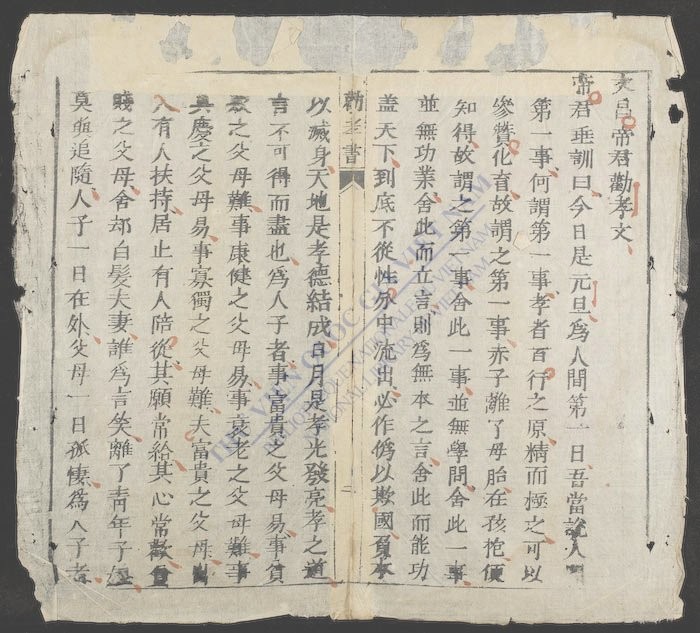 文昌帝君勸孝文
帝君垂訓曰今日是元旦為人間第一日吾當說人
第一事何謂第一事孝者百行之原精而極之可以
參贊化育故謂之第一事赤子離了母胎在孩抱便
知得故謂之第一事舍此一事並無學問舍此一事
並無功業舍此而立言則為無本之言舍此而能功
盖天下到底不從性分中流出必作偽以欺國負本
勸孝書
二
以滅身天地是孝德結成日月是孝光發亮孝之道
言不可得而盡也為人子者事富貴之父母易事貧
賤之父母難事康健之父母易事衰老之父母難事
具慶之父母易事寡獨之父母難夫富貴之父母出
入有人扶持居止有人陪從其願常給其心常歡貧
賤之父母舍却白髮夫妻誰為言笑離了青年子媳
莫與追隨人子一日在外父母一日孤悽為人子者
THƯ VIỆN QUỐC GIA VIỆT NAM
BIBLIOTHÈQUE NATIONALE DU VIETNAM
NATIONAL LIBRARY OF VIETNAM